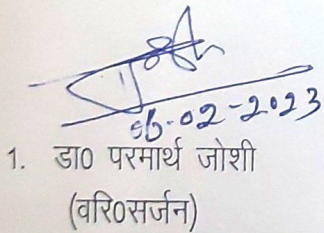 06-02-2023
1. डा0 परमार्थ जोशी
(वरि0सर्जन)